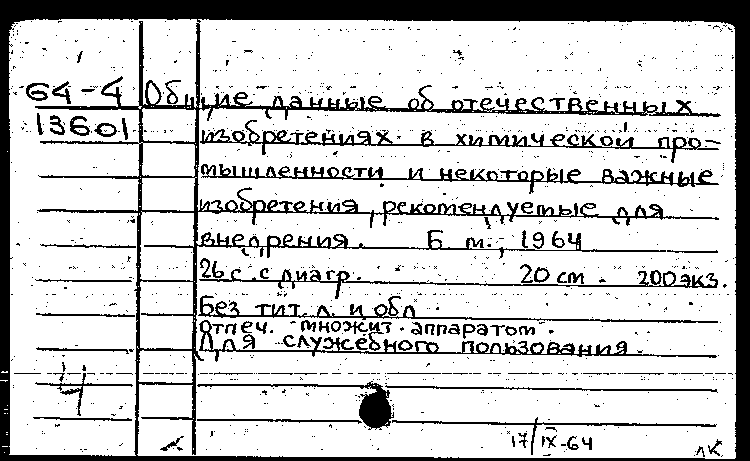 64-4 Общие данные об отечественных
13601 изобретениях в химической про-
мышленности и некоторые важные
изобретения, рекомендуемые для
внедрения. Б. м., 1964
26 с. с диагр. 20 см. 200 экз.
Без тит. л. и обл.
Отпеч. множит. аппаратом.
Для служебного пользования.
4
17/IX-64
ЛК